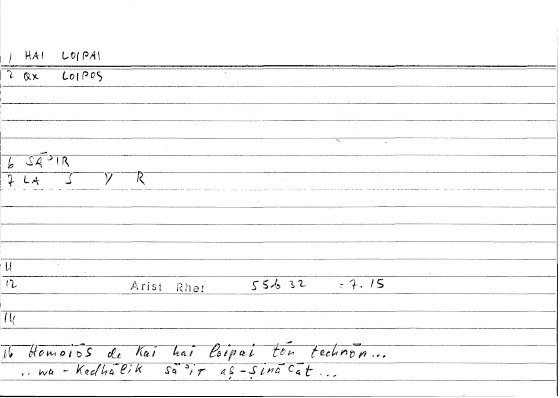 1 HAI LOIPAI
2 QX LOIPOS
6 SĀʾIR
7 LA S Y R
11
12 Arist Rhet 55b 32 = 7.15
14
16 Homoiōs de kai hai loipai tōn technōn...
..wa-Kadhālik sāʾir aṣ-ṣināʿāt...